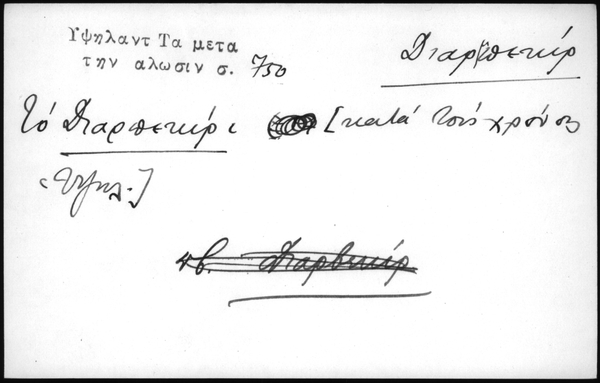 Υψηλαντ Τα μετα
την αλωσιν σ. 750
Διαρπεκίρ
Τό Διαρπεκίρι [κατά τούς χρόνους
Υψηλ.]
Διαρβεκίρ